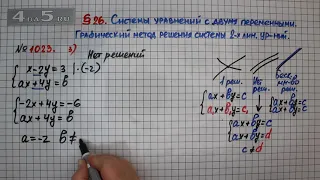 4ГДЗ.RU
§26. Системы уравнений с двумя переменными.
Графический метод решения системы 2-х лин. ур-ний.
№1023. 3) Нет решений
x-2y=3 |·(-2)
ax+4y=b
-2x+4y=-6
ax+4y=b
a=-2 b≠
1 реш.
Нет реш.
ax+by=c
ax+by=c
ax+by=c
ax+by=d
c≠d